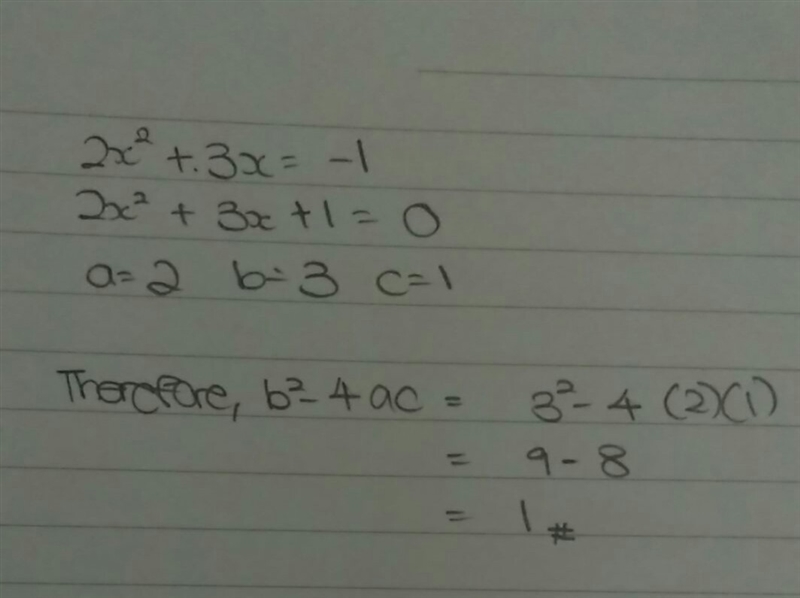 2x² + 3x = -1
2x² + 3x + 1 = 0
a = 2 b = 3 c = 1
Therefore, b² - 4ac = 3² - 4 (2)(1)
= 9 - 8
= 1 #